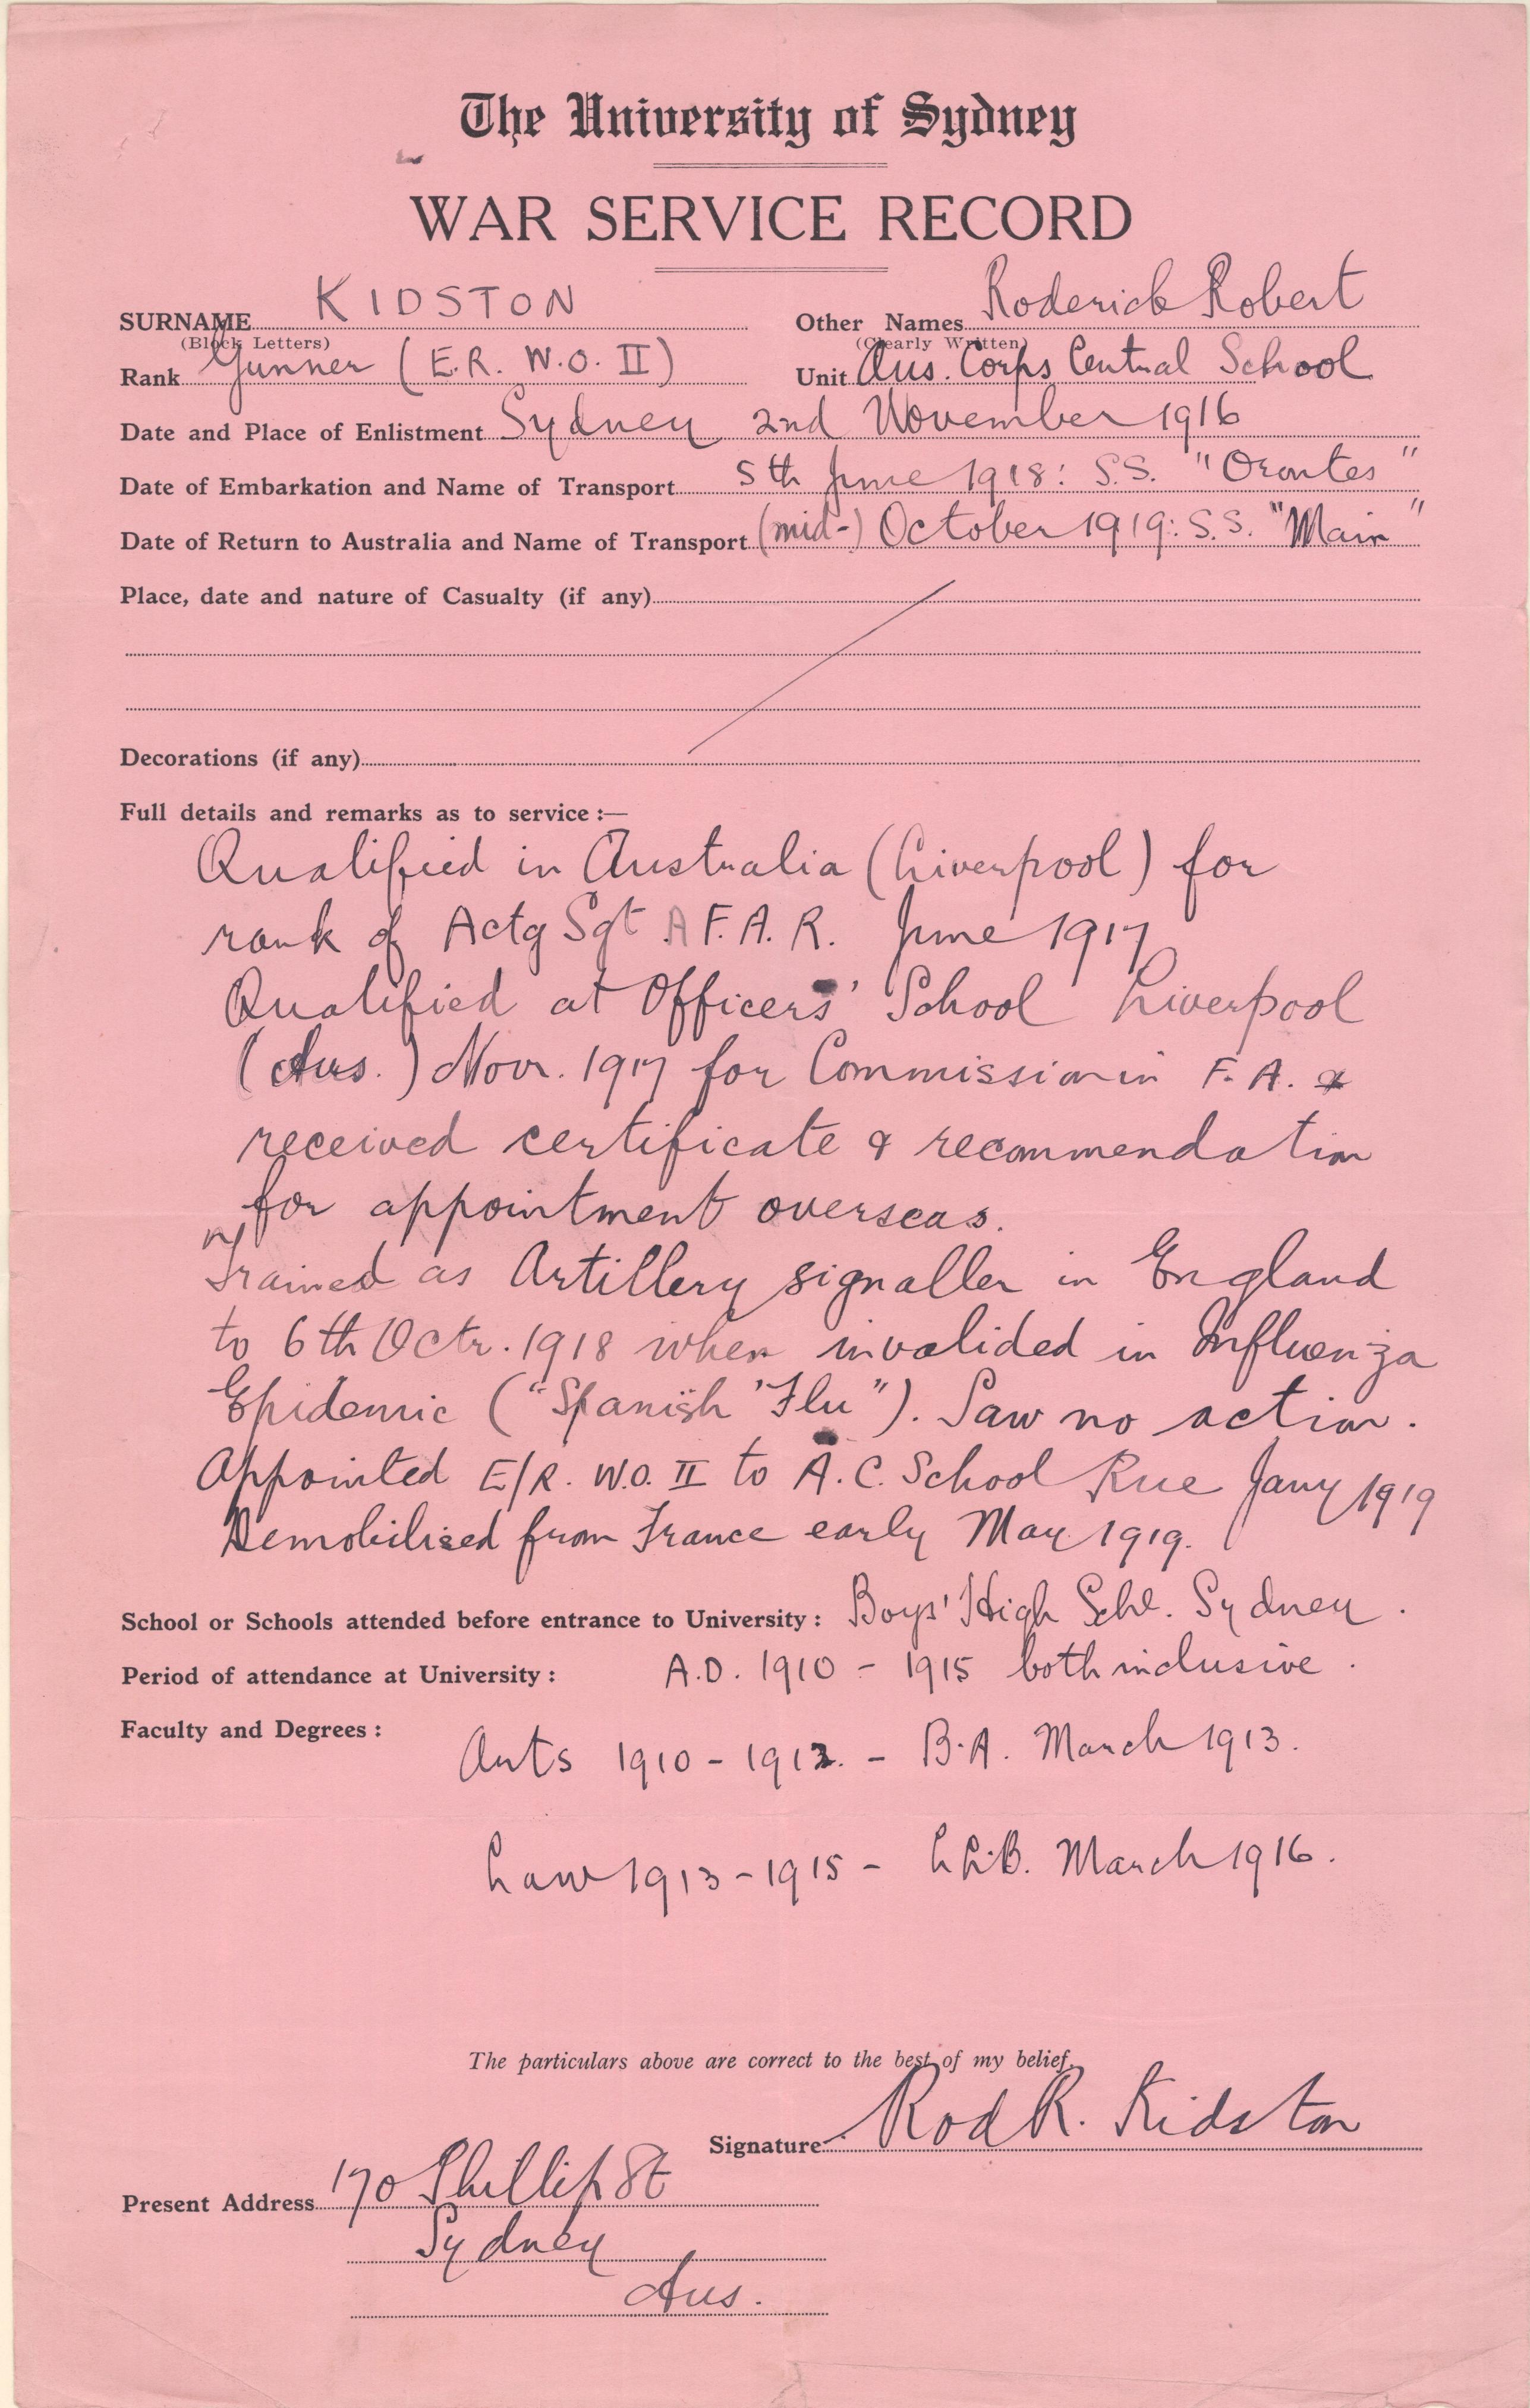 The University of Sydney
WAR SERVICE RECORD
SURNAME KIDSTON Other Names Roderick Robert
(Block Letters) (Clearly Written)
Rank Gunner (E.R. W.O. II) Unit Aus. Corps Central School
Date and Place of Enlistment Sydney 2nd November 1916
Date of Embarkation and Name of Transport 5th June 1918: S.S. "Orontes"
Date of Return to Australia and Name of Transport (mid-) October 1919: S.S. "Main"
Place, date and nature of Casualty (if any)
Decorations (if any)
Full details and remarks as to service:—
Qualified in Australia (Liverpool) for
rank of Actg Sgt A F.A.R. June 1917
Qualified at Officers' School Liverpool
(Aus.) Novr. 1917 for Commission in F.A. &
received certificate & recommendation
for appointment overseas.
Trained as Artillery signaller in England
to 6th Octr. 1918 when invalided in Influenza
Epidemic ("Spanish 'Flu"). Saw no action.
Appointed E/R. W.O. II to A.C. School Rue Jany 1919
Demobilised from France early May 1919.
School or Schools attended before entrance to University: Boys' High Schl. Sydney.
Period of attendance at University: A.D. 1910 - 1915 both inclusive.
Faculty and Degrees:
Arts 1910 - 1912. - B.A. March 1913.
Law 1913 - 1915 - LL.B. March 1916.
The particulars above are correct to the best of my belief.
Signature Rod R. Kidston
Present Address 170 Phillip St
Sydney
Aus.